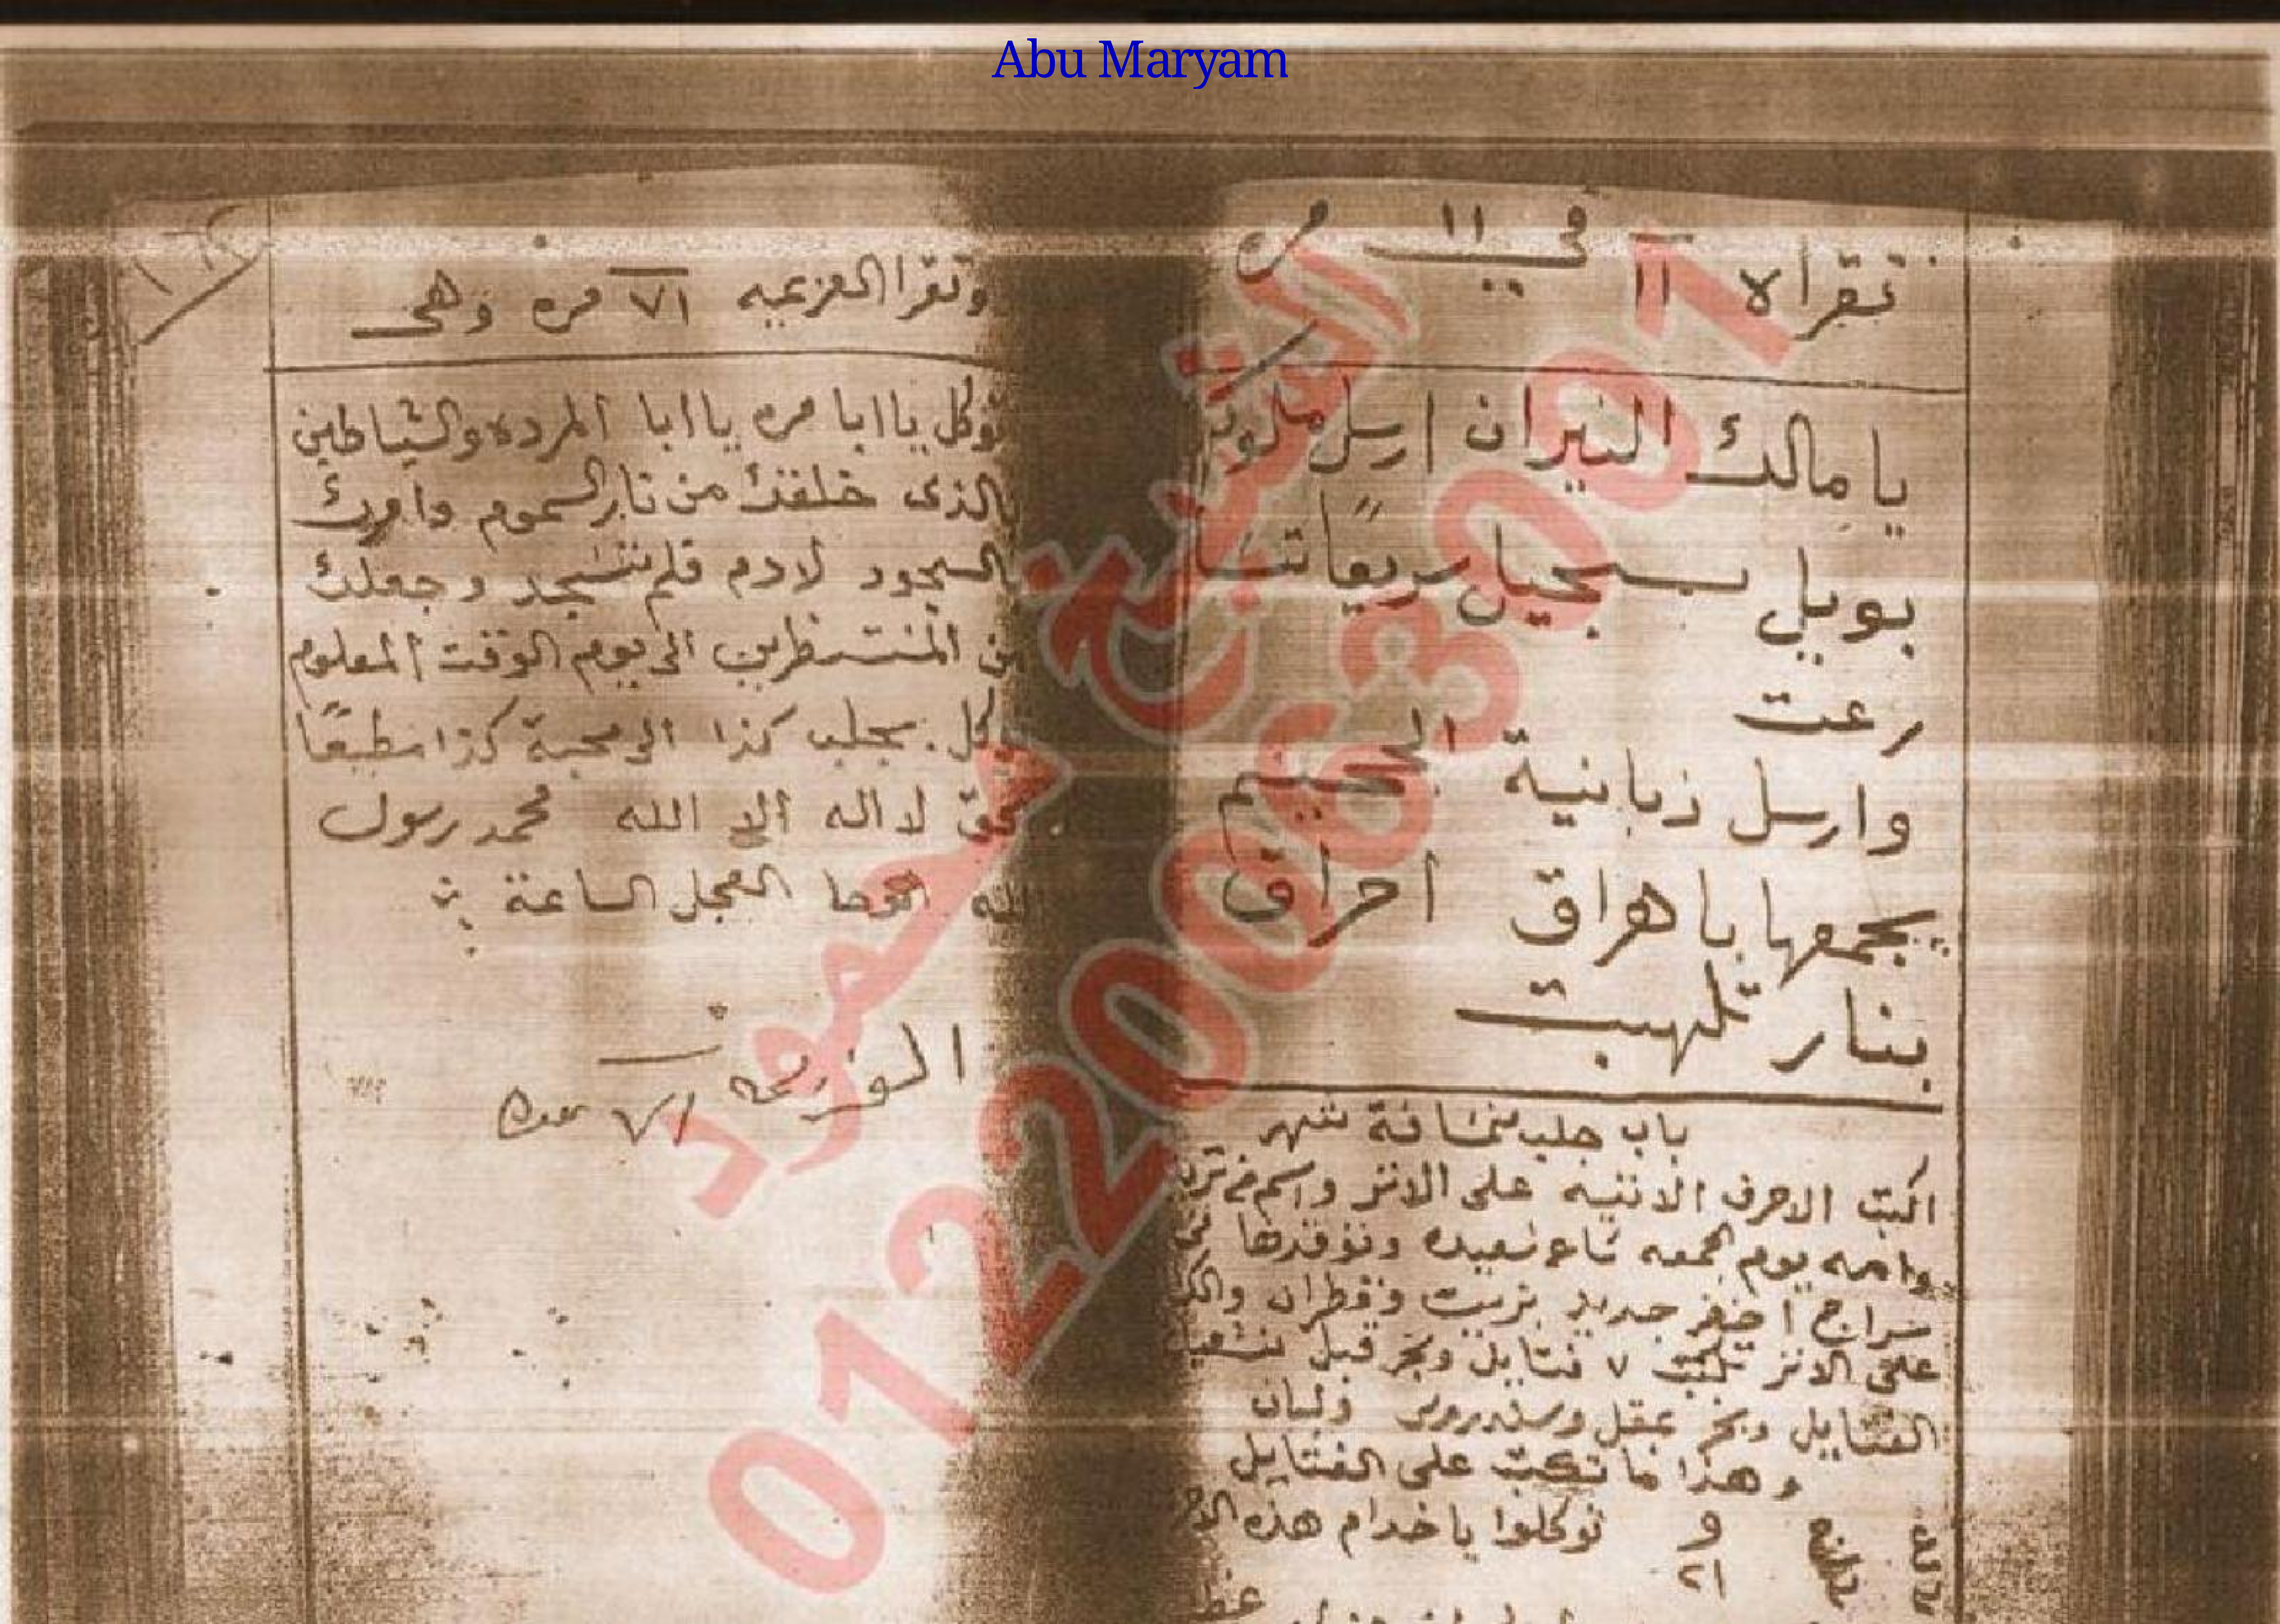 Abu Maryam
تقراه ١١ في ١١
يا مالك النيران ارسل
بويل بسجيل سريعا
رعت
وارسل زبانية الجحيم
بجمعها باهراق احراق
بنار تلهبت
باب جلب مسافة شهر
اكتب الاحرف الاتيه على الاتر واسم من تريد
وامه يوم الجمعه ساعه سعيده وتوقدها في
سراج اخضر جديد بزيت وقطران
على الاتر تكتب ٧ فتايل وبخر قبل
الفتايل وبخر بمقل وسندروس ولبان
وهذا ما تكتب على الفتايل
توكلوا يا خدام هذه
وتقرا العزيميه ٧١ مره وهى
توكل يا ابا مره يا ابا المرده والشياطين
بالذى خلقك من نار السموم وامرك
بالسجود لادم فلم تسجد وجعلك
من المنتظرين الى يوم الوقت المعلوم
توكل بجلب كذا الى محبة كذا مطيعًا
بحق لا اله الا الله محمد رسول
الله الوحا العجل الساعة
العزيمه ٧١ مره
الشيخ حمود
01220063001